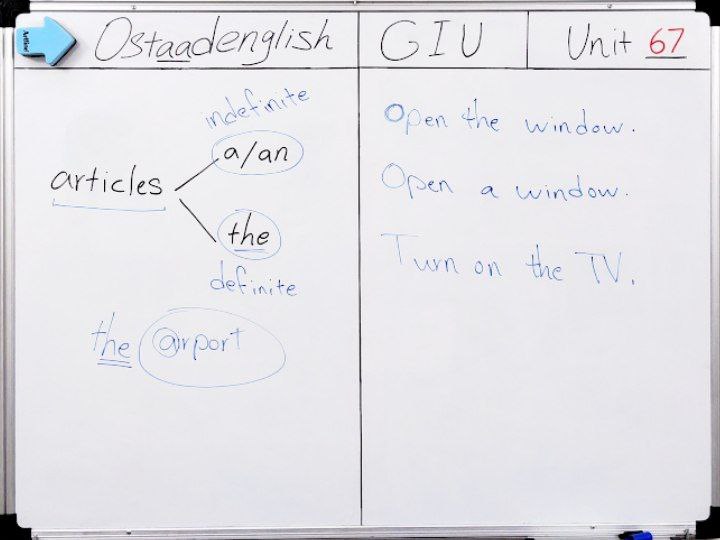 Ostaadenglish
GIU
Unit 67
indefinite
a/an
articles
the
definite
the airport
Open the window.
Open a window.
Turn on the TV.